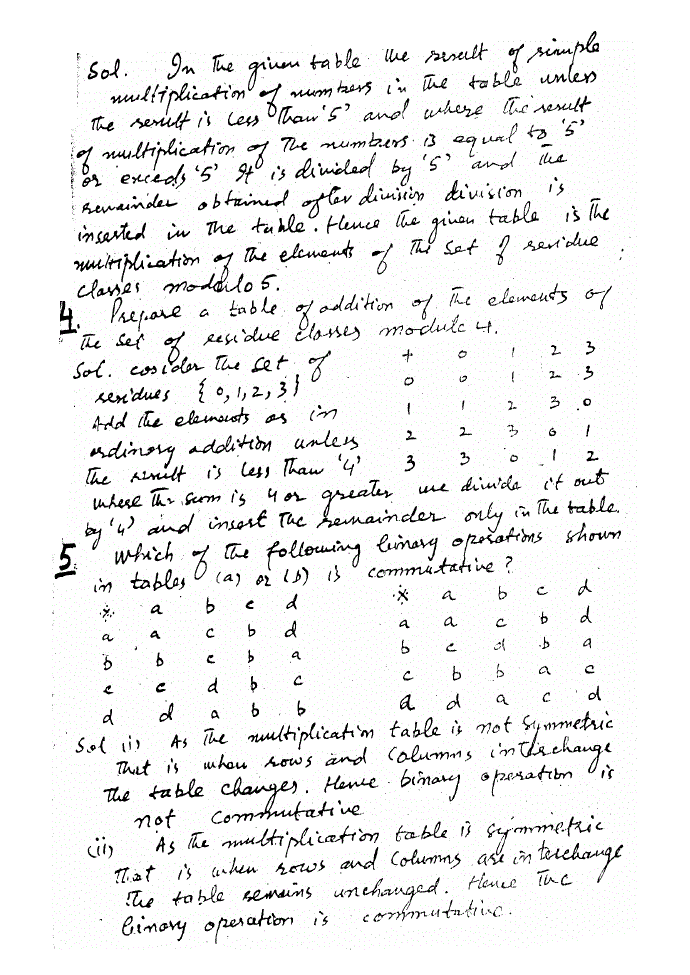 Sol. In The given table the result of simple
multiplication of numbers in the table unless
the result is less Than '5' and where the result
of multiplication of The numbers is equal to '5'
or exceds '5' It is divided by '5' and the
remainder obtained after division division is
inserted in the table. Hence the given table is the
multiplication of the elements of the set of residue
classes modulo 5.
4. Prepare a table of addition of the elements of
the set of residue classes modulo 4.
Sol. cosider the set of + 0 1 2 3
residues { 0, 1, 2, 3 } 0 0 1 2 3
Add the elements as in 1 1 2 3 0
ordinary addition unless 2 2 3 0 1
the result is less than '4' 3 3 0 1 2
where The sum is 4 or greater we divide it out
by '4' and insert the remainder only in the table.
5 Which of the following binary operations shown
in tables (a) or (b) is commutative ?
* a b c d * a b c d
a a c b d a a c b d
b b c b a b c d b a
c c d b c c b b a c
d d a b b d d a c d
Sol (i) As The multiplication table is not symmetric
That is when rows and Columns interchange
the table changes. Hence binary operation is
not commutative
(ii) As the multiplication table is symmetric
That is when rows and Columns are interchange
the table remains unchanged. Hence The
binary operation is commutative.